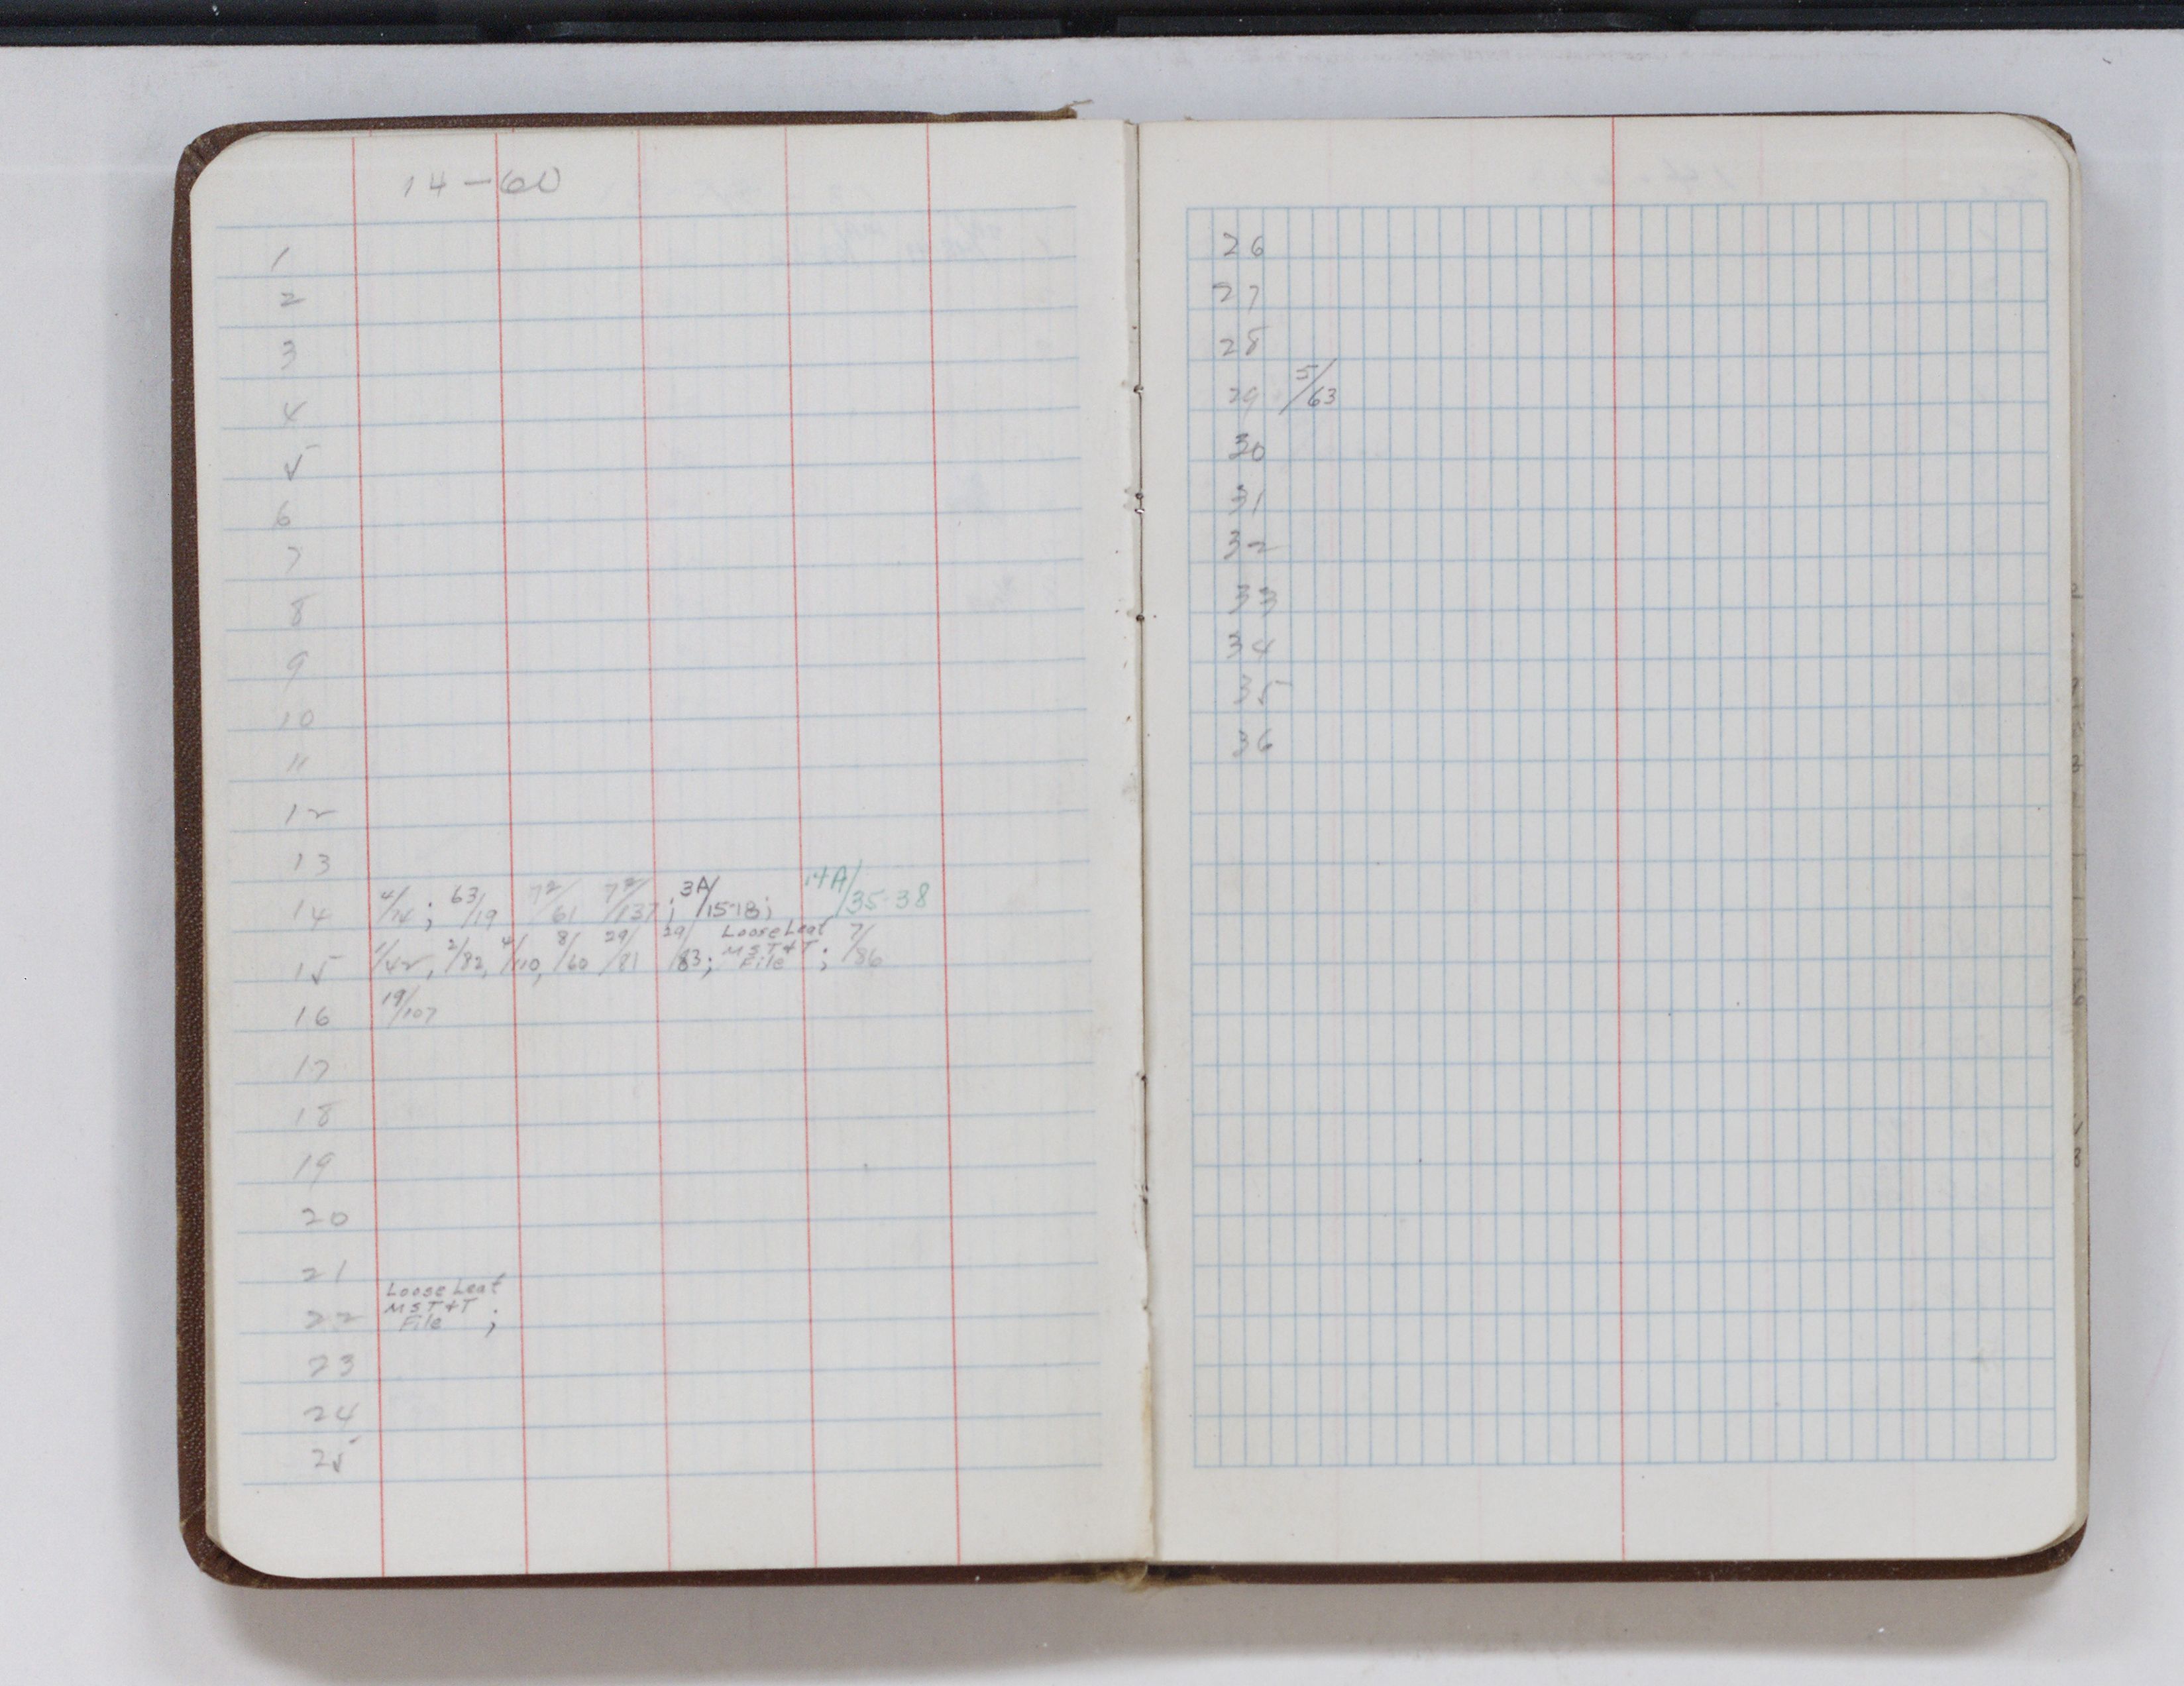 14-60
1
2
3
4
5
6
7
8
9
10
11
12
13
14 4/14; 63/19 72/61 72/137; 3A/15-18; 14A/35-38
15 1/42, 2/82, 4/110, 8/60 29/81 29/83; Loose Leaf MST&T File; 7/86
16 19/107
17
18
19
20
21
22 Loose Leaf MST&T File;
23
24
25
26
27
28
29 5/63
30
31
32
33
34
35
36